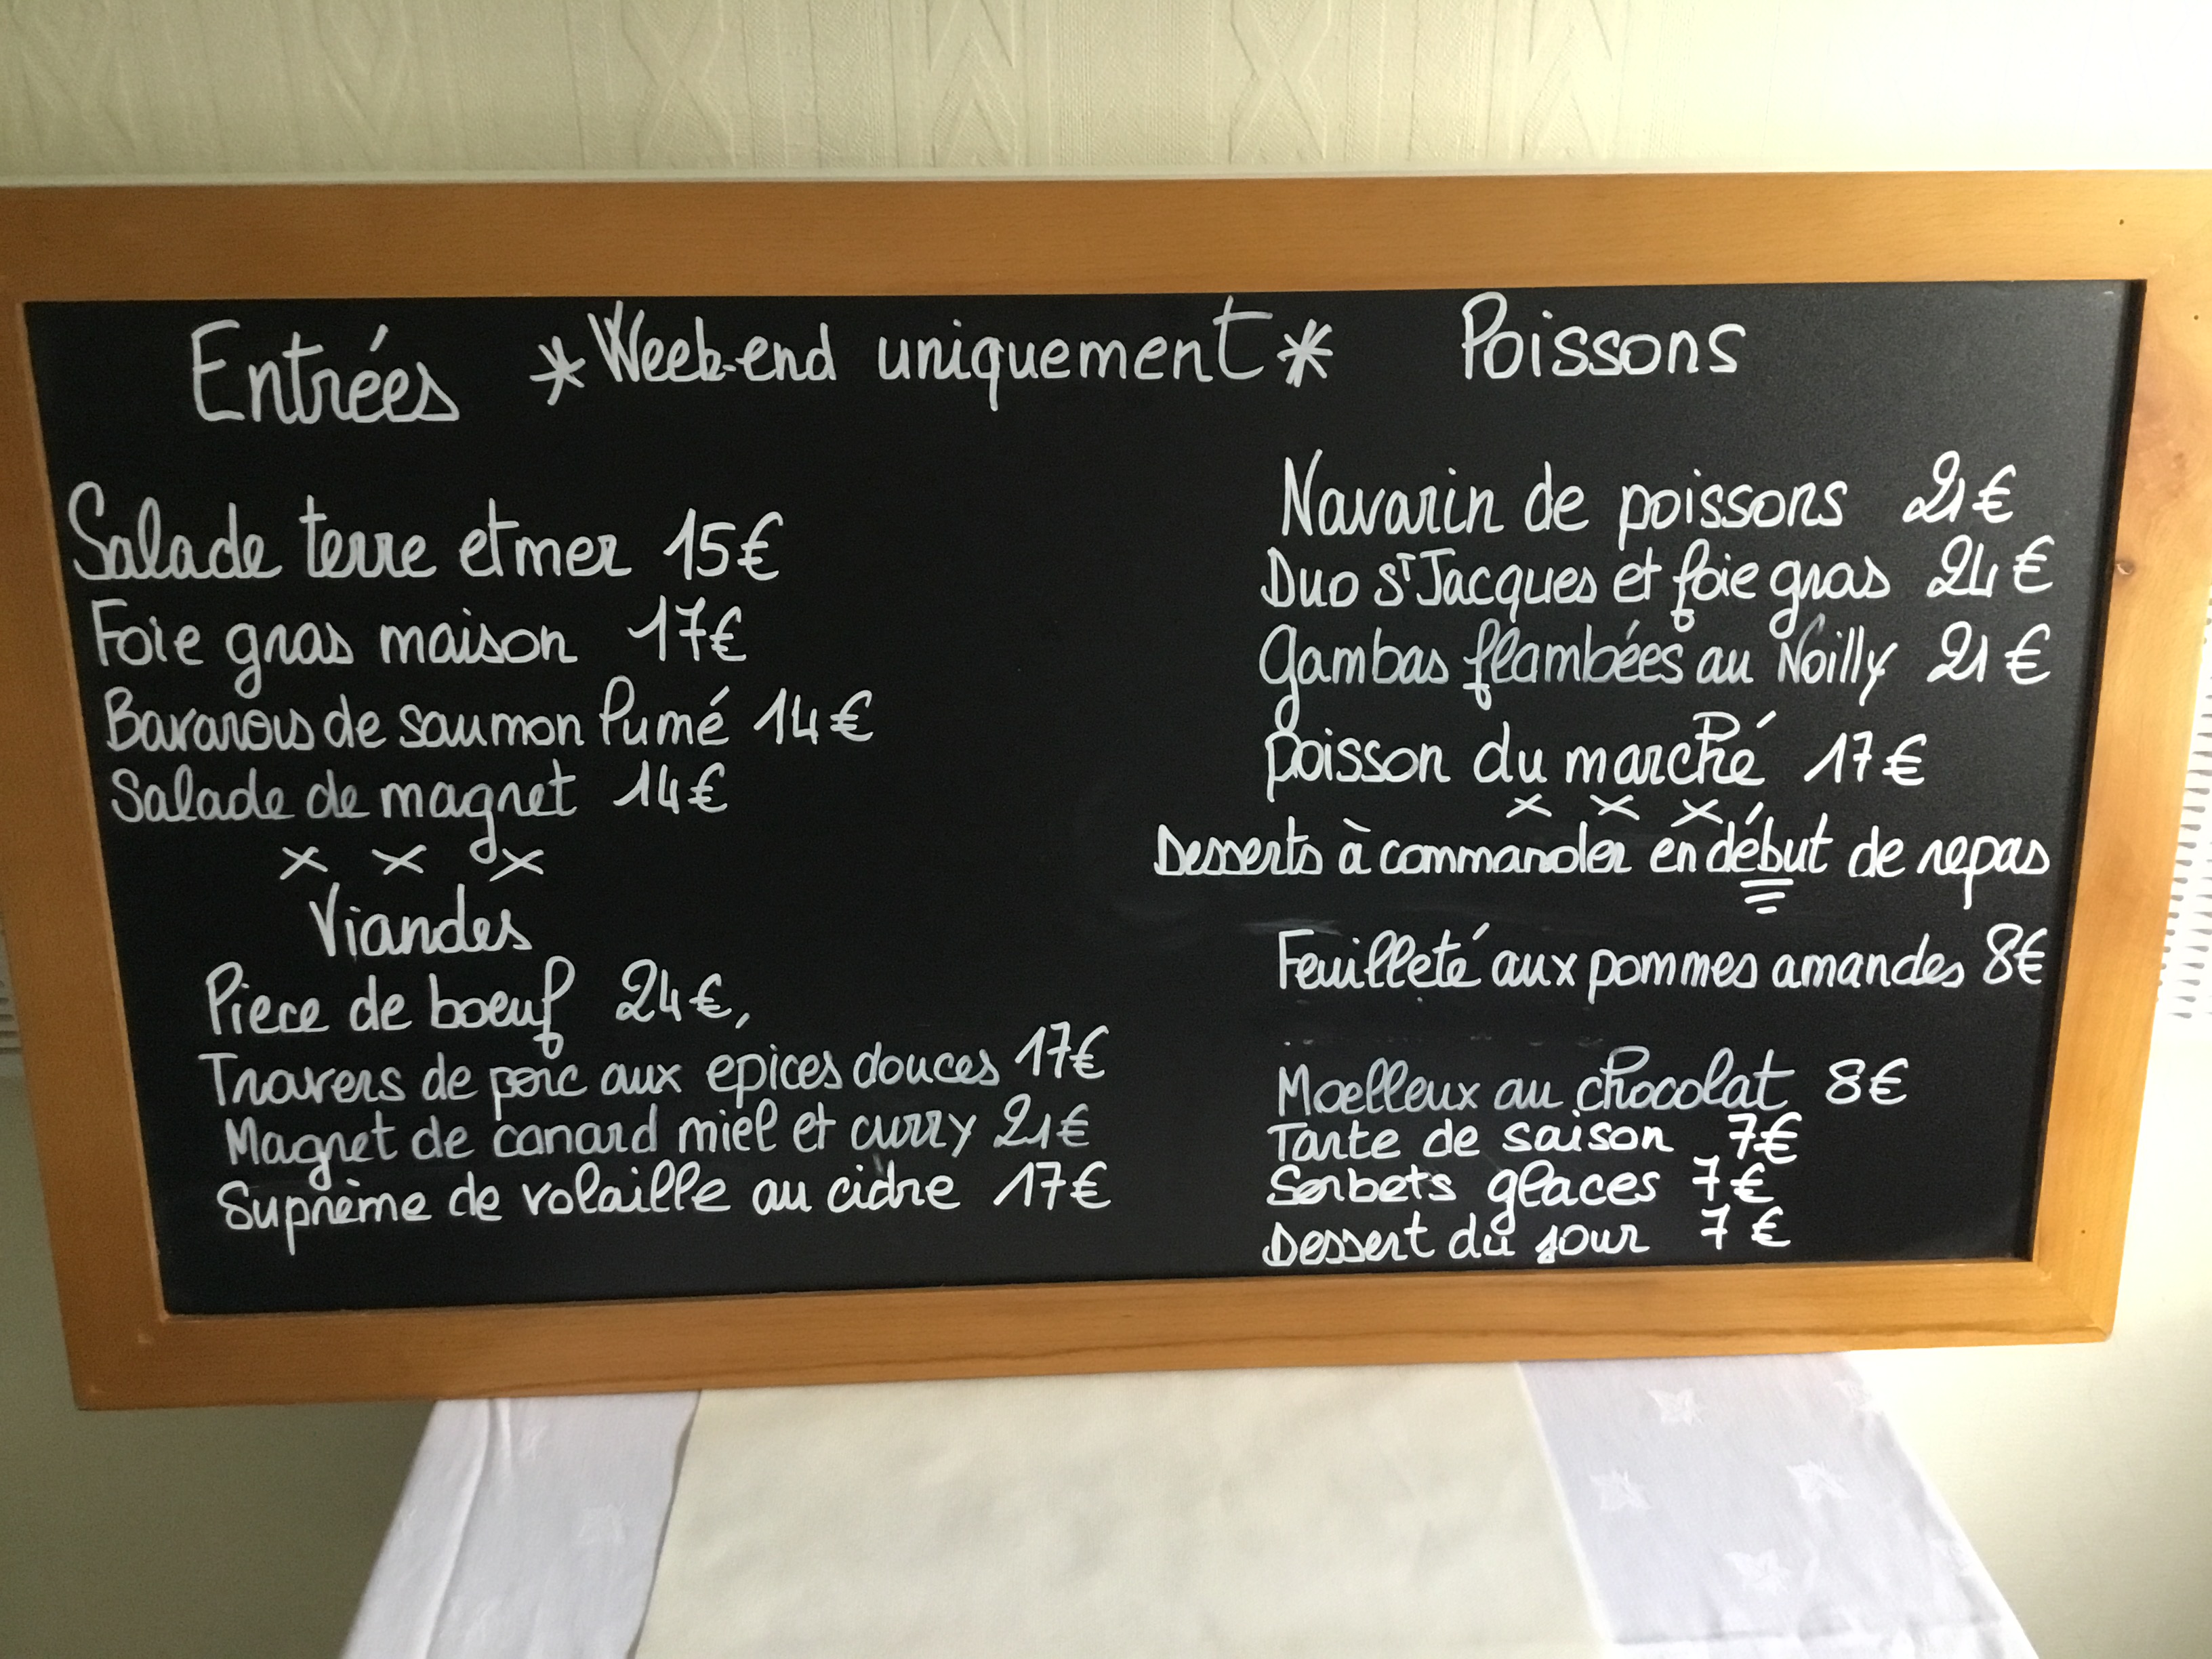 Entrées
* Week-end uniquement *
Salade terre et mer 15€
Foie gras maison 17€
Bavarois de saumon fumé 14€
Salade de magret 14€
x x x
Viandes
Piece de boeuf 24€,
Travers de porc aux epices douces 17€
Magret de canard miel et curry 21€
Suprème de volaille au cidre 17€
Poissons
Navarin de poissons 21€
Duo St Jacques et foie gras 24€
Gambas flambées au Noilly 21€
Poisson du marché 17€
x x x
Desserts à commander en début de repas
Feuilleté aux pommes amandes 8€
Moelleux au chocolat 8€
Tarte de saison 7€
Sorbets glaces 7€
Dessert du jour 7€